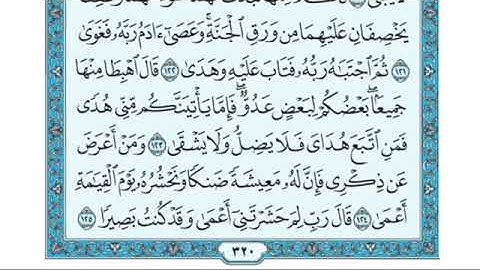 يَخْصِفَانِ عَلَيْهِمَا مِن وَرَقِ ٱلْجَنَّةِ ۚ وَعَصَىٰٓ ءَادَمُ رَبَّهُۥ فَغَوَىٰ
١٢١ ثُمَّ ٱجْتَبَٰهُ رَبُّهُۥ فَتَابَ عَلَيْهِ وَهَدَىٰ ١٢٢ قَالَ ٱهْبِطَا مِنْهَا
جَمِيعًۢا ۖ بَعْضُكُمْ لِبَعْضٍ عَدُوٌّ ۖ فَإِمَّا يَأْتِيَنَّكُم مِّنِّى هُدًى
فَمَنِ ٱتَّبَعَ هُدَاىَ فَلَا يَضِلُّ وَلَا يَشْقَىٰ ١٢٣ وَمَنْ أَعْرَضَ
عَن ذِكْرِى فَإِنَّ لَهُۥ مَعِيشَةً ضَنكًا وَنَحْشُرُهُۥ يَوْمَ ٱلْقِيَٰمَةِ
أَعْمَىٰ ١٢٤ قَالَ رَبِّ لِمَ حَشَرْتَنِىٓ أَعْمَىٰ وَقَدْ كُنتُ بَصِيرًا ١٢٥
٣٢٠